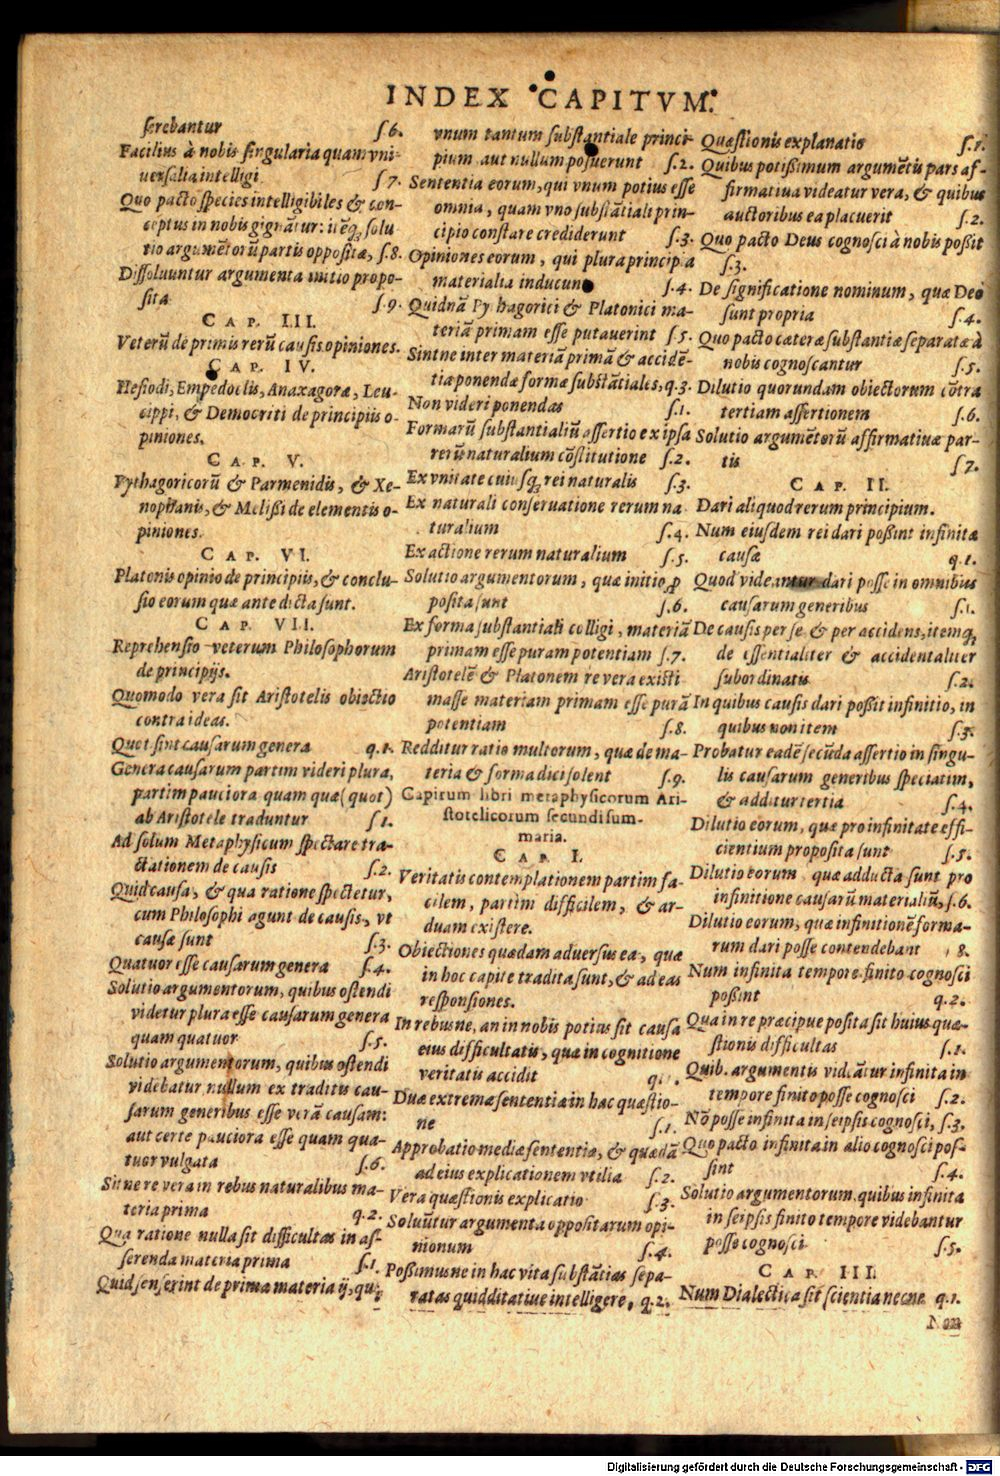 INDEX CAPITVM.
ferebantur ſ.6.
Facilius à nobis ſingularia quam vni-
uerſalia intelligi ſ.7.
Quo pacto ſpecies intelligibiles & con-
ceptus in nobis gignātur: itēq; ſolu
tio argumētorū partis oppoſitæ, ſ.8.
Diſſoluuntur argumenta initio propo-
ſita ſ.9.
CAP. III.
Veterū de primis rerū cauſis opiniones.
CAP. IV.
Heſiodi, Empedoclis, Anaxagoræ, Leu-
cippi, & Democriti de principiis o-
piniones.
CAP. V.
Pythagoricorū & Parmenidis, & Xe-
nophanis, & Meliſſi de elementis o-
piniones.
CAP. VI.
Platonis opinio de principiis, & conclu-
ſio eorum quæ ante dicta ſunt.
CAP. VII.
Reprehenſio veterum Philoſophorum
de principijs.
Quomodo vera ſit Ariſtotelis obiectio
contra ideas.
Quot ſint cauſarum genera q.1.
Genera cauſarum partim videri plura,
partim pauciora quam quæ (quot)
ab Ariſtotele traduntur ſ.1.
Ad ſolum Metaphyſicum ſpectare tra-
ctationem de cauſis ſ.2.
Quid cauſa, & qua ratione ſpectetur,
cum Philoſophi agunt de cauſis, vt
cauſæ ſunt ſ.3.
Quatuor eſſe cauſarum genera ſ.4.
Solutio argumentorum, quibus oſtendi
videtur plura eſſe cauſarum genera
quam quatuor ſ.5.
Solutio argumentorum, quibus oſtendi
videbatur nullum ex traditis cau-
ſarum generibus eſſe verā cauſam:
aut certe pauciora eſſe quam qua-
tuor vulgata ſ.6.
Sitne re vera in rebus naturalibus ma-
teria prima q.2.
Qua ratione nulla ſit difficultas in aſ-
ſerenda materia prima ſ.1.
Quid ſenſerint de prima materia ij, qui
vnum tantum ſubſtantiale princi-
pium aut nullum poſuerunt ſ.2.
Sententia eorum, qui vnum potius eſſe
omnia, quam vno ſubſtātiali prin-
cipio conſtare crediderunt ſ.3.
Opiniones eorum, qui plura principia
materialia inducunt ſ.4.
Quidnā Pythagorici & Platonici ma-
teriā primam eſſe putauerint ſ.5.
Sintne inter materiā primā & accidē-
tia ponendæ formæ ſubſtātiales, q.3.
Non videri ponendas ſ.1.
Formarū ſubſtantialiū aſſertio ex ipſa
rerū naturalium cōſtitutione ſ.2.
Ex vnitate cuiuſq; rei naturalis ſ.3.
Ex naturali conſeruatione rerum na
turalium ſ.4.
Ex actione rerum naturalium ſ.5.
Solutio argumentorum, quæ initio ꝓ
poſita ſunt ſ.6.
Ex forma ſubſtantiali colligi, materiā
primam eſſe puram potentiam ſ.7.
Ariſtotelē & Platonem re vera exiſti
maſſe materiam primam eſſe purā
potentiam ſ.8.
Redditur ratio multorum, quæ de ma-
teria & forma dici ſolent ſ.9.
Capitum libri metaphyſicorum Ari-
ſtotelicorum ſecundi ſum-
maria.
CAP. I.
Veritatis contemplationem partim fa-
cilem, partim difficilem, & ar-
duam exiſtere.
Obiectiones quædam aduerſus ea, quæ
in hoc capite tradita ſunt, & ad eas
reſponſiones.
In rebusne, an in nobis potius ſit cauſa
eius difficultatis, quæ in cognitione
veritatis accidit
Duæ extremæ ſententiæ in hac quæſtio-
ne ſ.1.
Approbatio mediæ ſententiæ, & quædā
ad eius explicationem vtilia ſ.2.
Vera quæſtionis explicatio ſ.3.
Soluūtur argumenta oppoſitarum opi-
nionum ſ.4.
Poſſimusne in hac vita ſubſtātias ſepa-
ratas quidditatiue intelligere, q.2.
Quæſtionis explanatio ſ.1.
Quibus potiſſimum argumētis pars af-
firmatiua videatur vera, & quibus
auctoribus ea placuerit ſ.2.
Quo pacto Deus cognoſci à nobis poſſit
ſ.3.
De ſignificatione nominum, quæ Deo
ſunt propria ſ.4.
Quo pacto cæteræ ſubſtantiæ ſeparatæ à
nobis cognoſcantur ſ.5.
Dilutio quorundam obiectorum cōtra
tertiam aſſertionem ſ.6.
Solutio argumētorū affirmatiuæ par-
tis ſ.7.
CAP. II.
Dari aliquod rerum principium.
Num eiuſdem rei dari poſſint infinitæ
cauſæ q.1.
Quod videantur dari poſſe in omnibus
cauſarum generibus ſ.1.
De cauſis per ſe & per accidens, itemq;
de eſſentialiter & accidentaliter
ſubordinatis ſ.2.
In quibus cauſis dari poſſit infinitio, in
quibus non item ſ.3.
Probatur eadē ſecūda aſſertio in ſingu-
lis cauſarum generibus ſpeciatim,
& additur tertia ſ.4.
Dilutio eorum, quæ pro infinitate effi-
cientium propoſita ſunt ſ.5.
Dilutio eorum quæ adducta ſunt pro
infinitione cauſarū materialiū, ſ.6.
Dilutio eorum, quæ infinitionē forma-
rum dari poſſe contendebant 8.
Num infinita tempore finito cognoſci
poſſint q.2.
Qua in re præcipue poſita ſit huius quæ-
ſtionis difficultas ſ.1.
Quib. argumentis videātur infinita in
tempore finito poſſe cognoſci ſ.2.
Nō poſſe infinita in ſeipſis cognoſci, ſ.3.
Quo pacto infinita in alio cognoſci poſ-
ſint ſ.4.
Solutio argumentorum, quibus infinita
in ſeipſis finito tempore videbantur
poſſe cognoſci ſ.5.
CAP. III.
Num Dialectica ſit ſcientia necne q.1.
Non
Digitalisierung gefördert durch die Deutsche Forschungsgemeinschaft - DFG